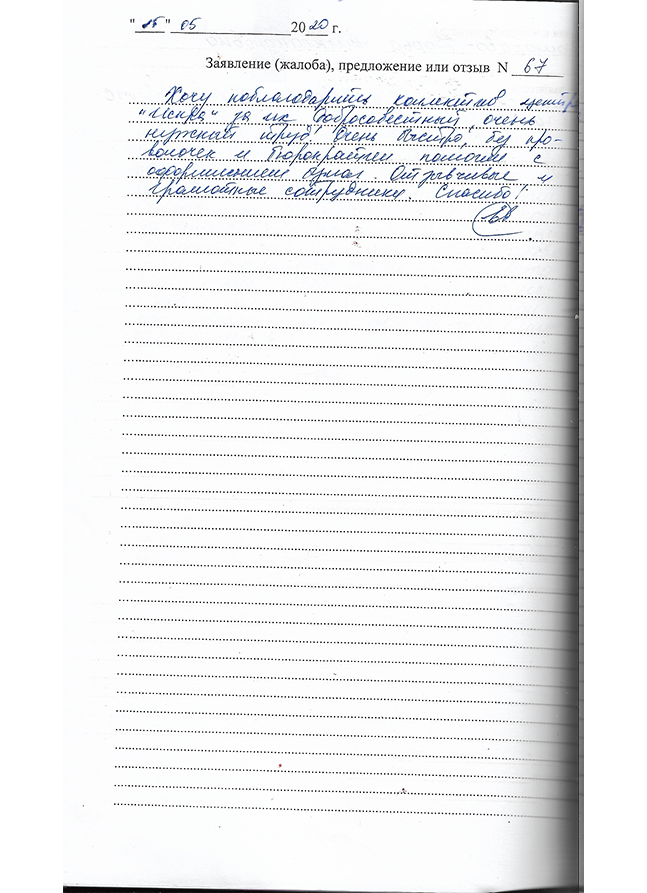 "15" 05 2020 г.
Заявление (жалоба), предложение или отзыв N 67
Хочу поблагодарить коллектив центра
"Искра" за их добросовестный, очень
нужный труд. Очень быстро, без про-
волочек и бюрократии помогли с
оформлением бумаг. Отзывчивые и
грамотные сотрудники. Спасибо!